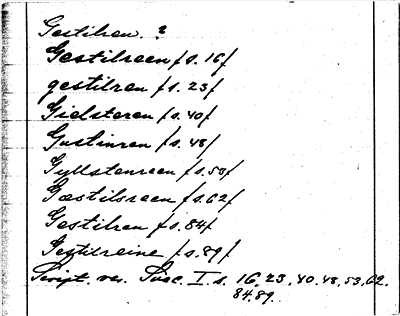 Gestilren. ?
Gestilreen /s. 16/
gestilren /s. 23/
Gielsteren /s. 40/
Gustinren /s. 48/
Gyllstenreen /s. 53/
Gæstilsreen /s. 62/
Gestilren /s. 84/
Gestilreine /s. 89/
Script. rer. Svec. I. s. 16, 23, 40, 48, 53, 62,
84, 89.